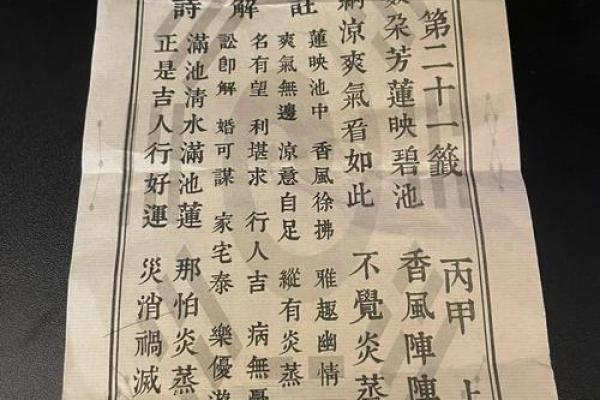 第二十一籤 丙甲 上
朵芳蓮映碧池 香風陣陣
納涼爽氣看如此 不覺炎蒸
註
蓮映池中 香風徐拂 雅趣幽情
爽氣無邊 涼意自足 縱有炎蒸
解
名有望 利堪求 行人吉 病無憂
訟卽解 婚可謀 家宅泰 樂優游
詩
滿池清水滿池蓮 那怕炎蒸
正是吉人行好運 災消禍滅